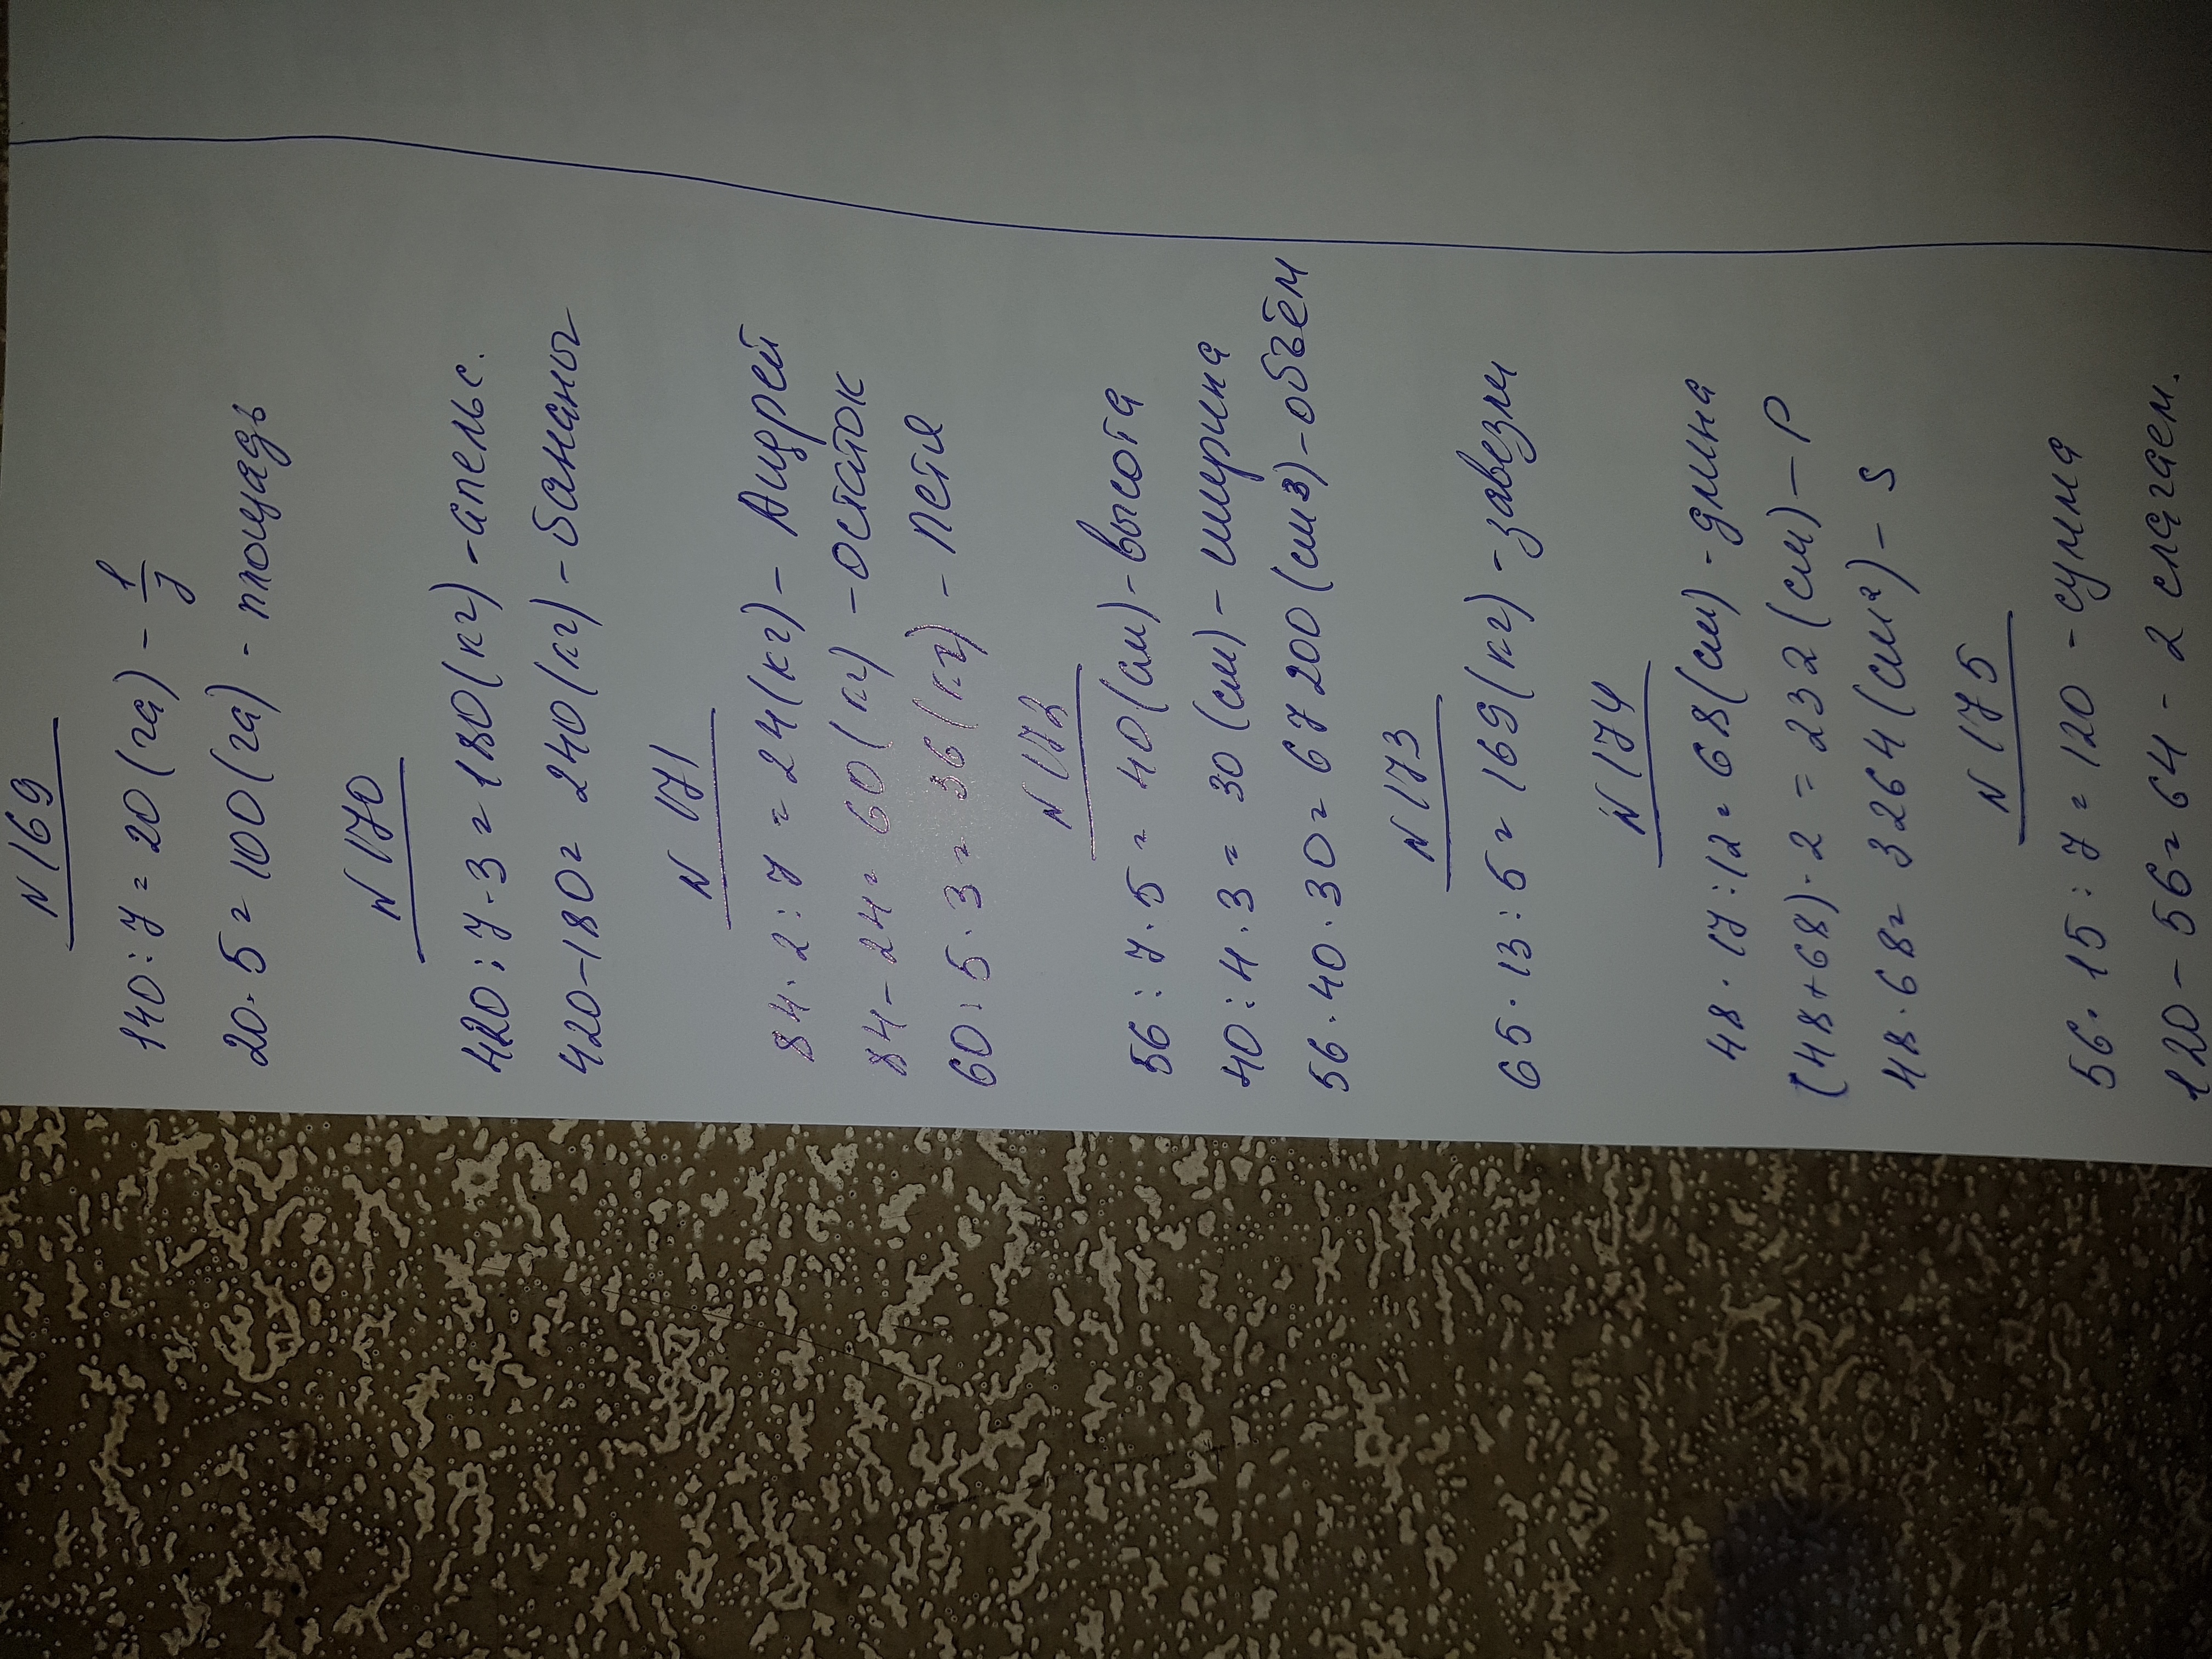 N 169
140 : 7 = 20 (га) - 1/7
20 · 5 = 100 (га) - площадь
N 170
420 : 7 · 3 = 180 (кг) - апельс.
420 - 180 = 240 (кг) - бананы
N 171
84 · 2 : 7 = 24 (кг) - Андрей
84 - 24 = 60 (кг) - остаток
60 : 5 · 3 = 36 (кг) - Петя
N 172
56 : 7 · 5 = 40 (см) - высота
40 : 4 · 3 = 30 (см) - ширина
56 · 40 · 30 = 67 200 (см3) - объём
N 173
65 · 13 : 5 = 169 (кг) - завезли
N 174
48 · 17 : 12 = 68 (см) - длина
(48 + 68) · 2 = 232 (см) - P
48 · 68 = 3264 (см²) - S
N 175
56 · 15 : 7 = 120 - сумма
120 - 56 = 64 - 2 слагаем.